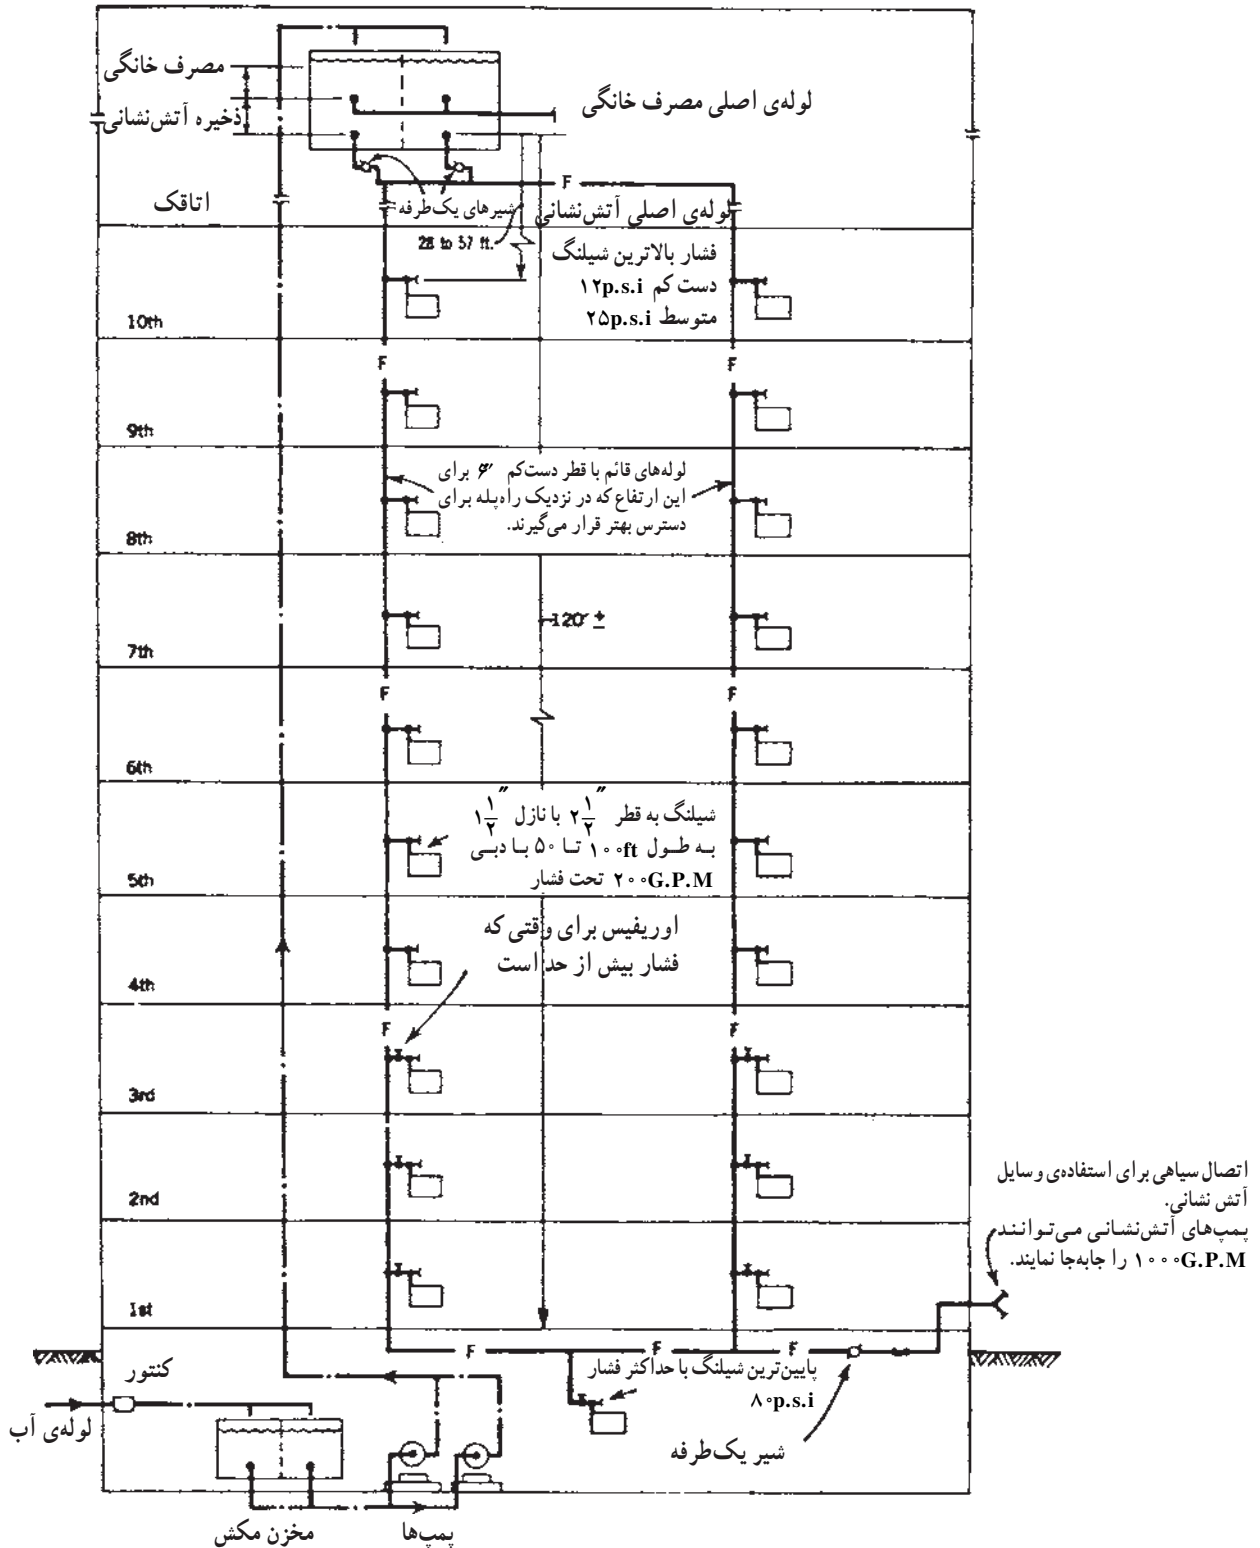 مصرف خانگی
ذخیره آتش‌نشانی
لوله‌ی اصلی مصرف خانگی
اتاقک
شیرهای یک‌طرفه
F
لوله‌ی اصلی آتش‌نشانی
فشار بالاترین شیلنگ
دست کم ۱۲p.s.i
متوسط ۲۵p.s.i
10th
F
F
9th
لوله‌های قائم با قطر دست‌کم ۶″ برای
این ارتفاع که در نزدیک راه‌پله برای
دسترس بهتر قرار می‌گیرند.
8th
120′ ±
7th
F
F
6th
شیلنگ به قطر ۲ ۱/۲″ با نازل ۱ ۱/۲″
به طول ۱۰۰ft تا ۵۰ با دبی
۲۰۰G.P.M تحت فشار
5th
اوریفیس برای وقتی که
فشار بیش از حد است
4th
F
F
3rd
2nd
اتصال سیاهی برای استفاده‌ی وسایل
آتش نشانی.
پمپ‌های آتش‌نشانی می‌توانند
۱۰۰۰G.P.M را جابه‌جا نمایند.
1st
F
F
F
کنتور
لوله‌ی آب
پایین‌ترین شیلنگ با حداکثر فشار
۸۰p.s.i
شیر یک‌طرفه
مخزن مکش
پمپ‌ها